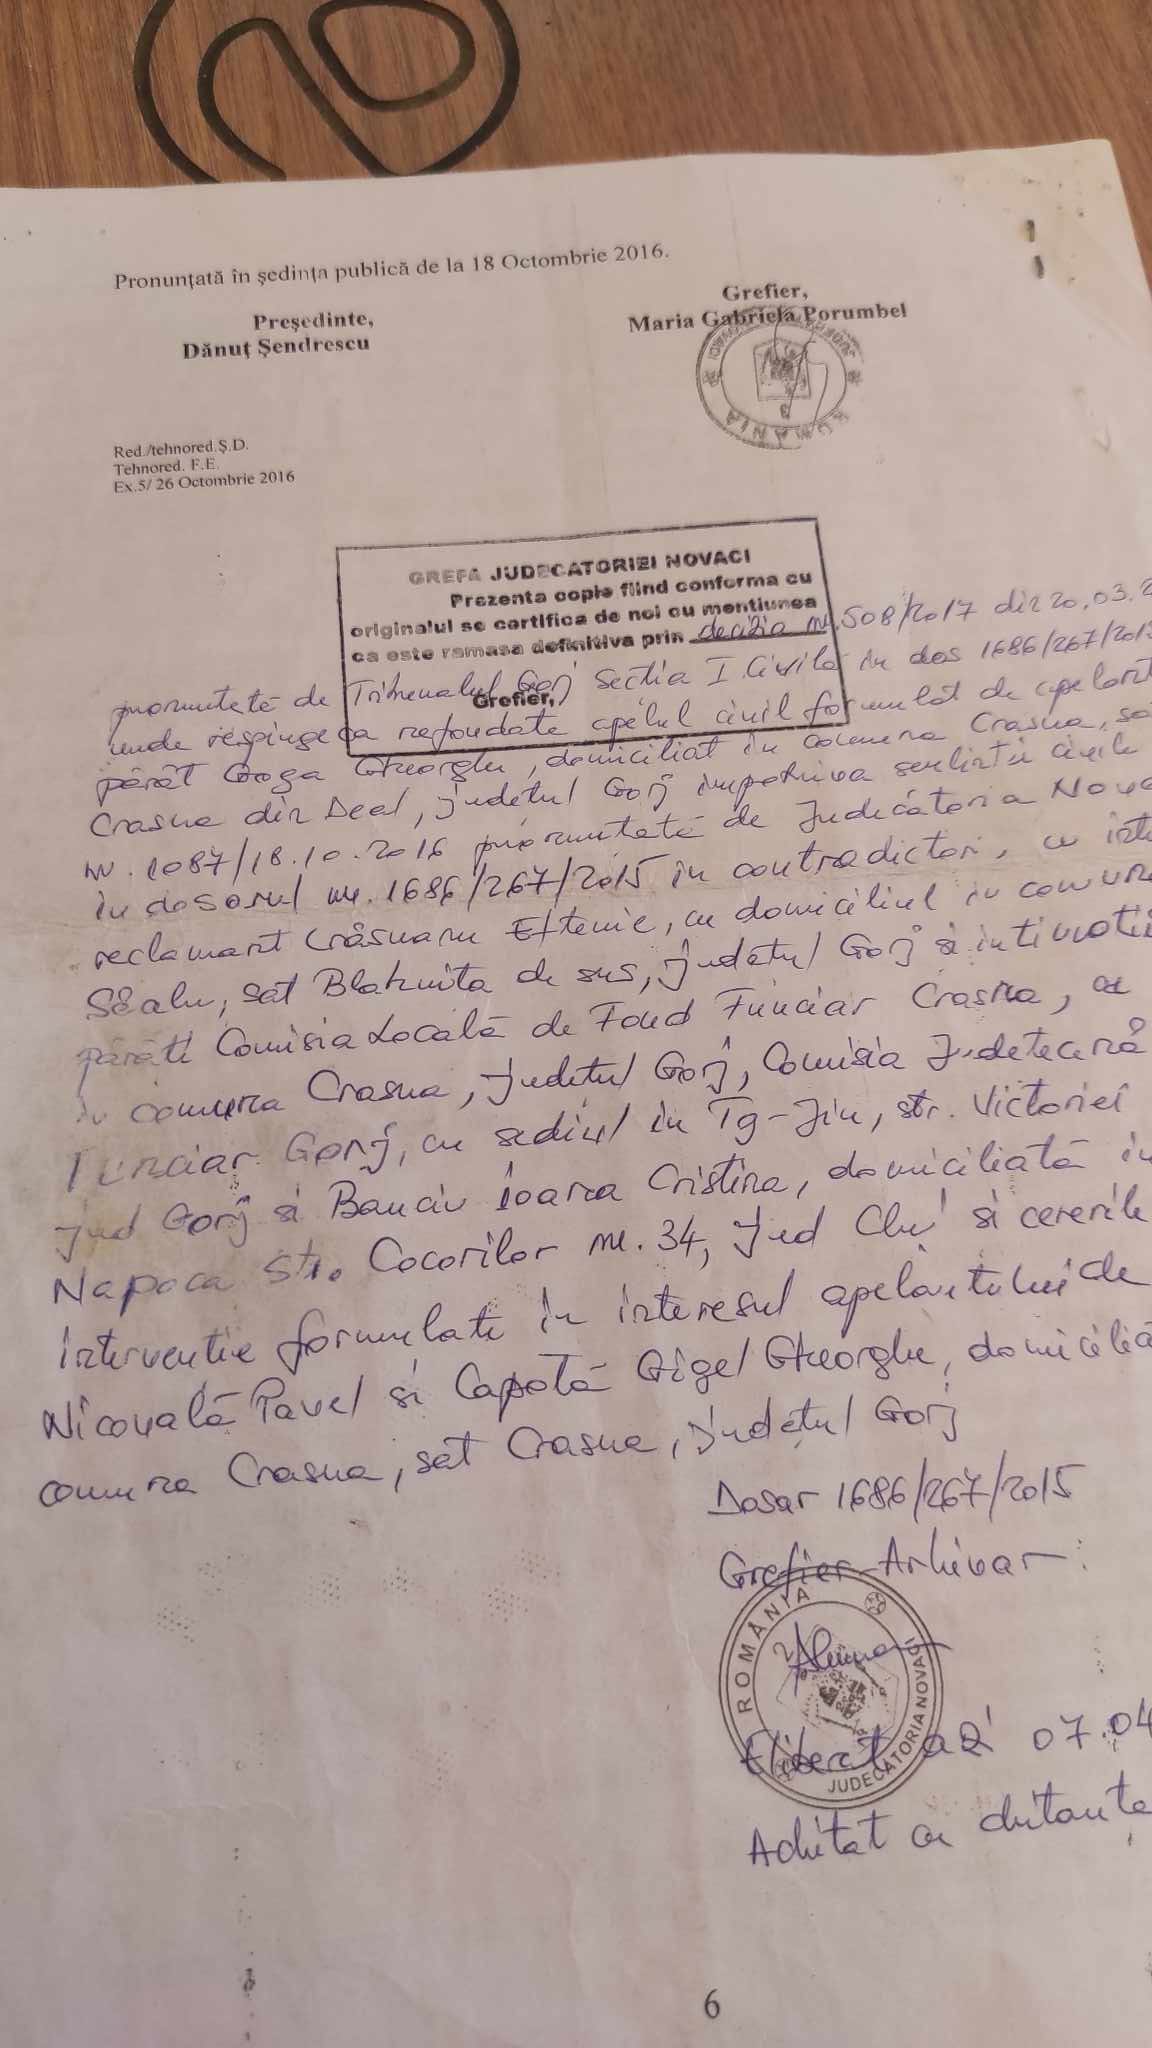 Pronunţată în şedinţa publică de la 18 Octombrie 2016.
Preşedinte,
Dănuţ Şendrescu
Grefier,
Maria Gabriela Porumbel
ROMANIA
Red./tehnored.Ş.D.
Tehnored. F.E.
Ex.5/ 26 Octombrie 2016
GREFA JUDECATORIEI NOVACI
Prezenta copie fiind conforma cu
originalul se certifica de noi cu mentiunea
ca este ramasa definitiva prin decizia nr. 508/2017 din 20.03.2
Grefier,
pronuntată de Tribunalul Gorj Sectia I Civilă in dos 1686/267/2015
unde respinge ca nefondate apelul civil formulat de apelant
pârât Goga Gheorghe, domiciliat in comuna Crasna, sa
Crasna din Deal, judetul Gorj impotriva sentintei civile
nr. 1087/18.10.2016 pronuntată de Judecătoria Nova
in dosarul nr. 1686/267/2015 in contradictori, cu inti
reclamant Crăsnaru Eftenie, cu domiciliul in comuna
Săalu, sat Blahnita de sus, judetul Gorj si intimatii
pârâti Comisia Locală de Fond Funciar Crasna, cu
in comuna Crasna, judetul Gorj, Comisia Judeteană
Funciar Gorj, cu sediul in Tg-Jiu, str. Victoriei
jud Gorj si Banciu Ioana Cristina, domiciliată in
Napoca str. Cocorilor nr. 34, jud Cluj si cererile
interventie formulate in interesul apelantului de
Nicoală Pavel si Capotă Gigel Gheorghe, domicilia
comuna Crasna, sat Crasna, judetul Gorj
Dosar 1686/267/2015
Grefier-Arhivar
ROMÂNIA
JUDECATORIA NOVACI
Eliberat azi 07.04
Achitat cu chitanta
6